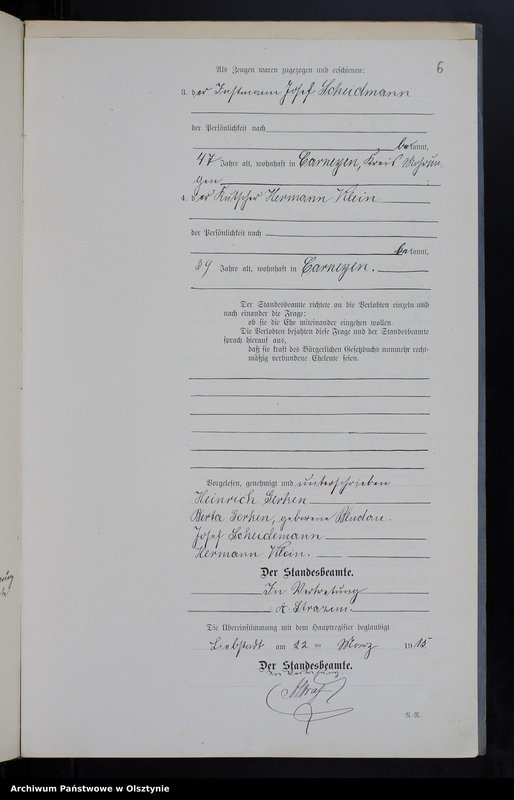 6
Als Zeugen waren zugezogen und erschienen:
3. der Instmann Josef Scheidmann
der Persönlichkeit nach
bekannt,
47 Jahre alt, wohnhaft in Carneyen, Kreis Mohrun-
gen
4. der Kutscher Hermann Klein
der Persönlichkeit nach
bekannt,
39 Jahre alt, wohnhaft in Carneyen.
Der Standesbeamte richtete an die Verlobten einzeln und
nach einander die Frage:
ob sie die Ehe miteinander eingehen wollen.
Die Verlobten bejahten diese Frage und der Standesbeamte
sprach hierauf aus,
daß sie kraft des Bürgerlichen Gesetzbuchs nunmehr recht-
mäßig verbundene Eheleute seien.
Vorgelesen, genehmigt und unterschrieben
Heinrich Gerhen
Berta Gerhen, geborene
Josef Scheidemann
Hermann Klein.
Der Standesbeamte.
In Vertretung
A.
Die Übereinstimmung mit dem Hauptregister beglaubigt
Liebstadt am 22 ten März 1915
Der Standesbeamte.
In Vertretung
N.-N.
Archiwum Państwowe w Olsztynie